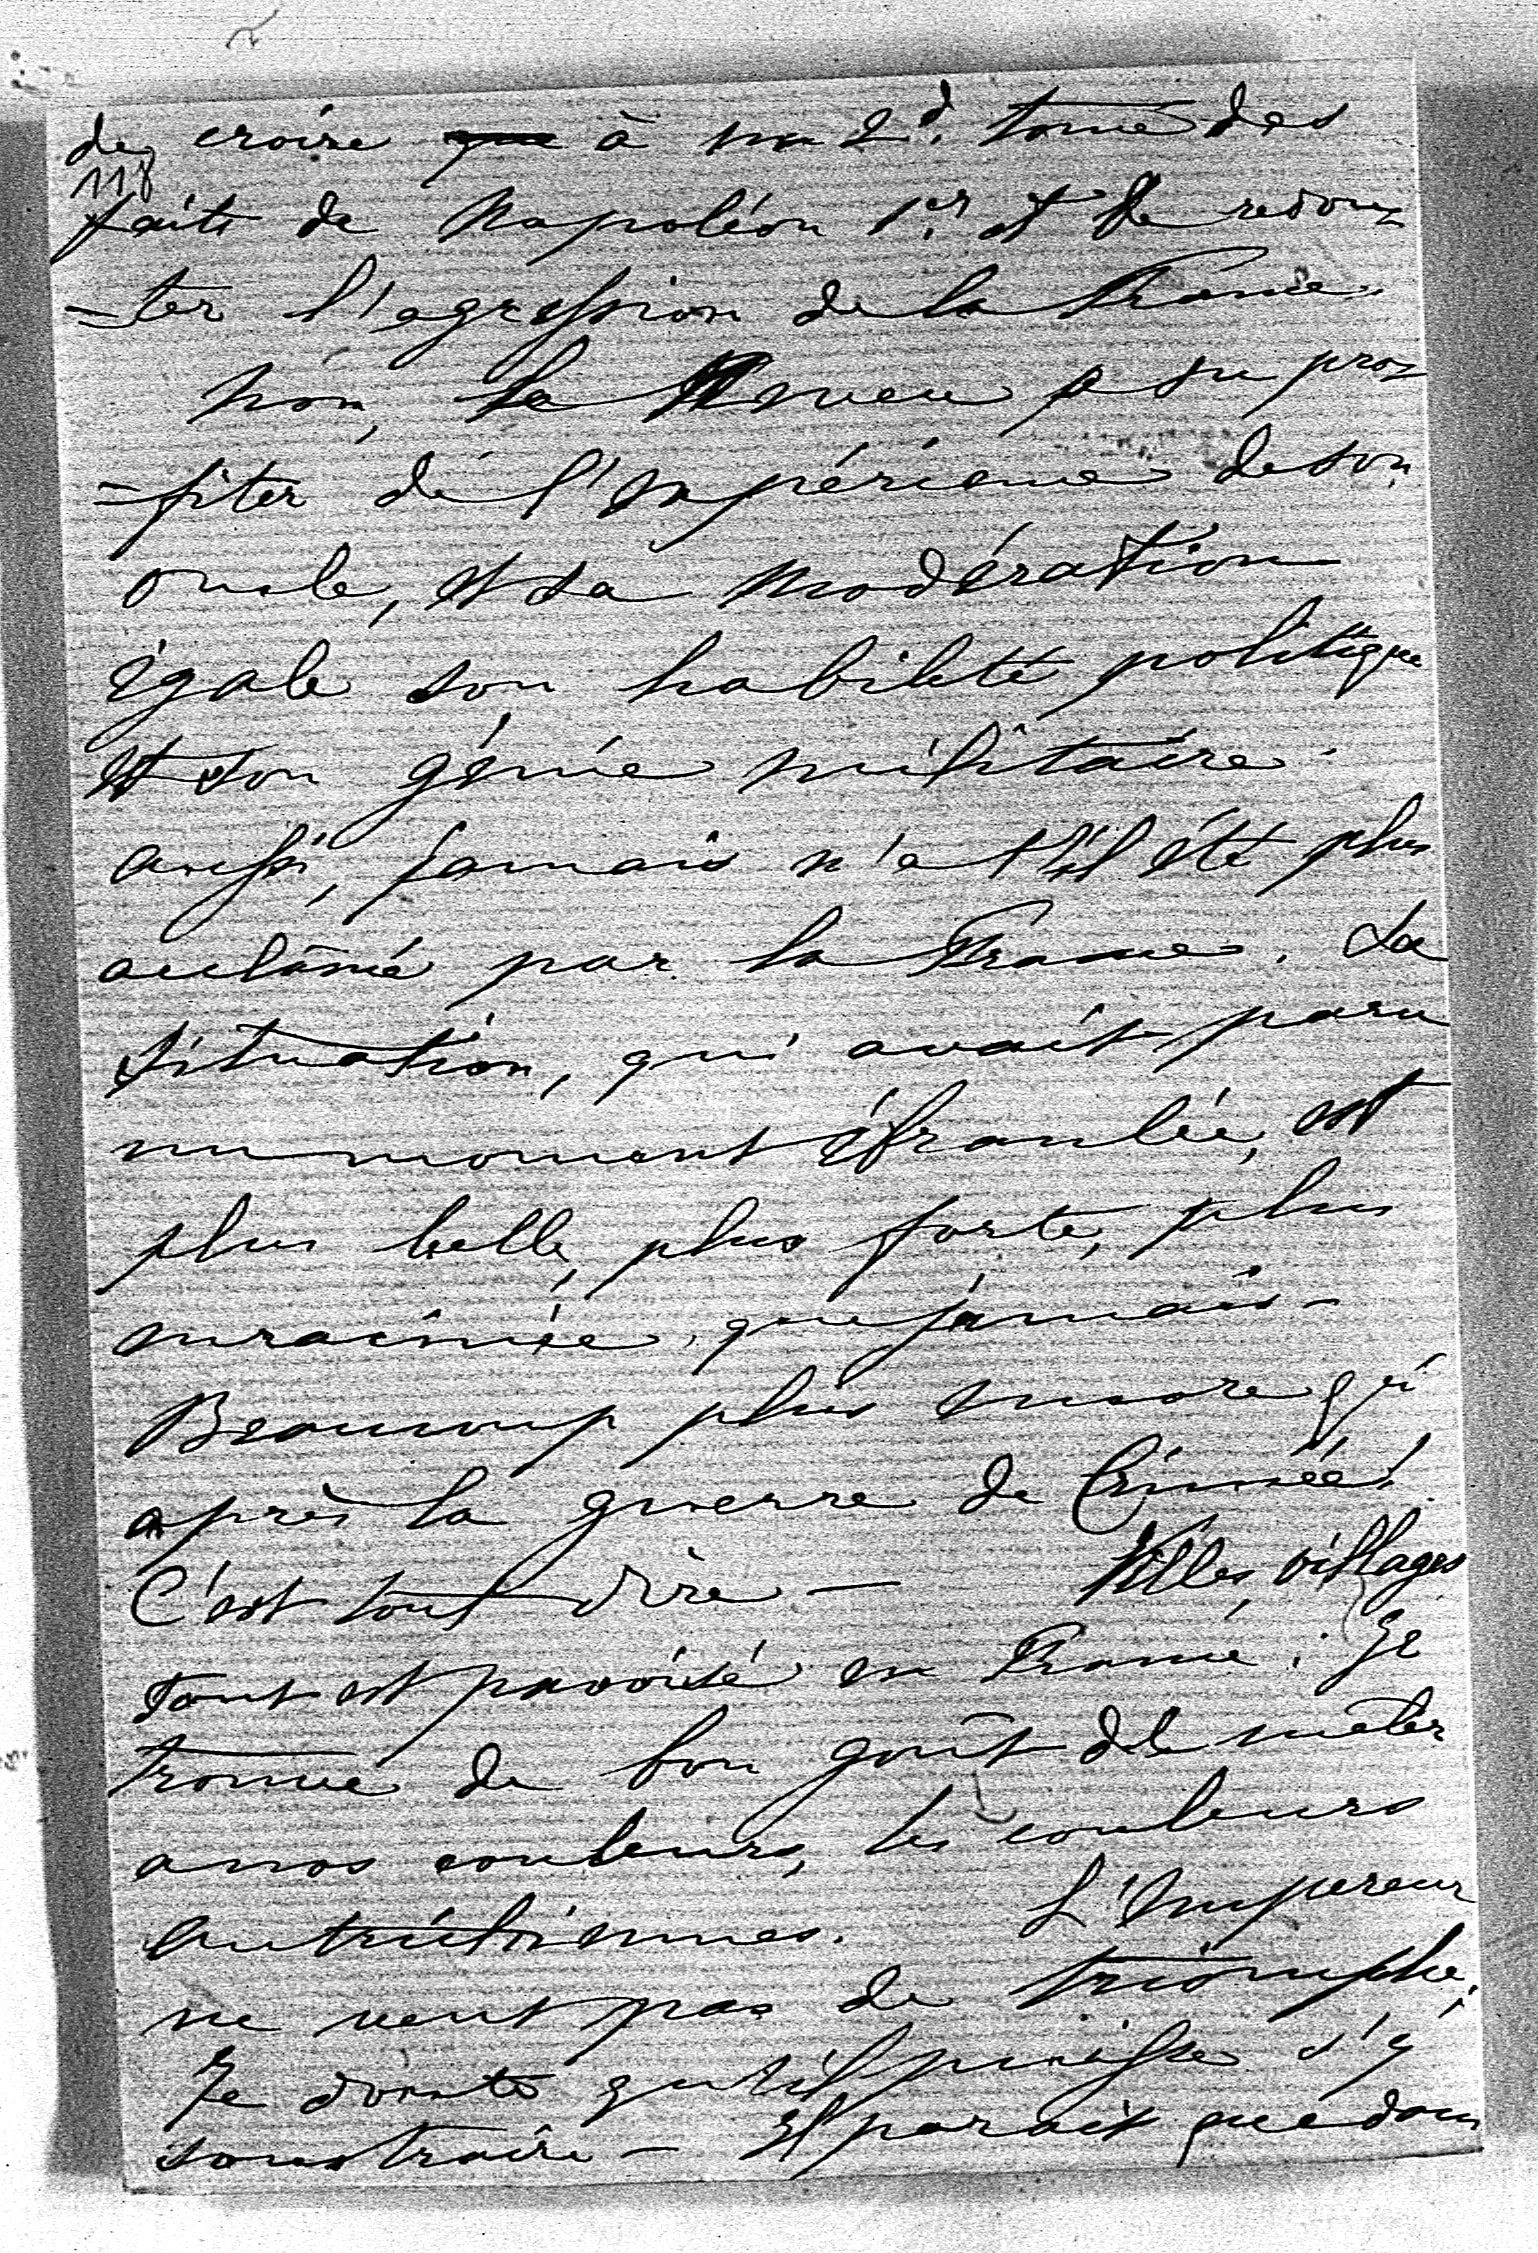 de croire que à un 2d. tome des
118
faits de Napoléon 1er. et de redou
=ter l'agression de la France.
Non, le neveu a su pro
=fiter de l'expérience de son
oncle, et sa modération
égale son habileté politique
et son génie militaire.
aussi, jamais n'a t'il été plus
acclamé par la France. La
situation, qui avait paru
un moment ébranlée, est
plus belle, plus forte, plus
enracinée, que jamais -
Beaucoup plus encore qu'
après la guerre de Crimée!
C'est tout dire — Villes, villages
tout est pavoisé en France. Je
trouve de bon goût de mêler
a nos couleurs, les couleurs
autrichiennes. L'Empereur
ne veut pas de triomphe;
Je doute qu'il puisse s'y
soustraire - Il parait que dans